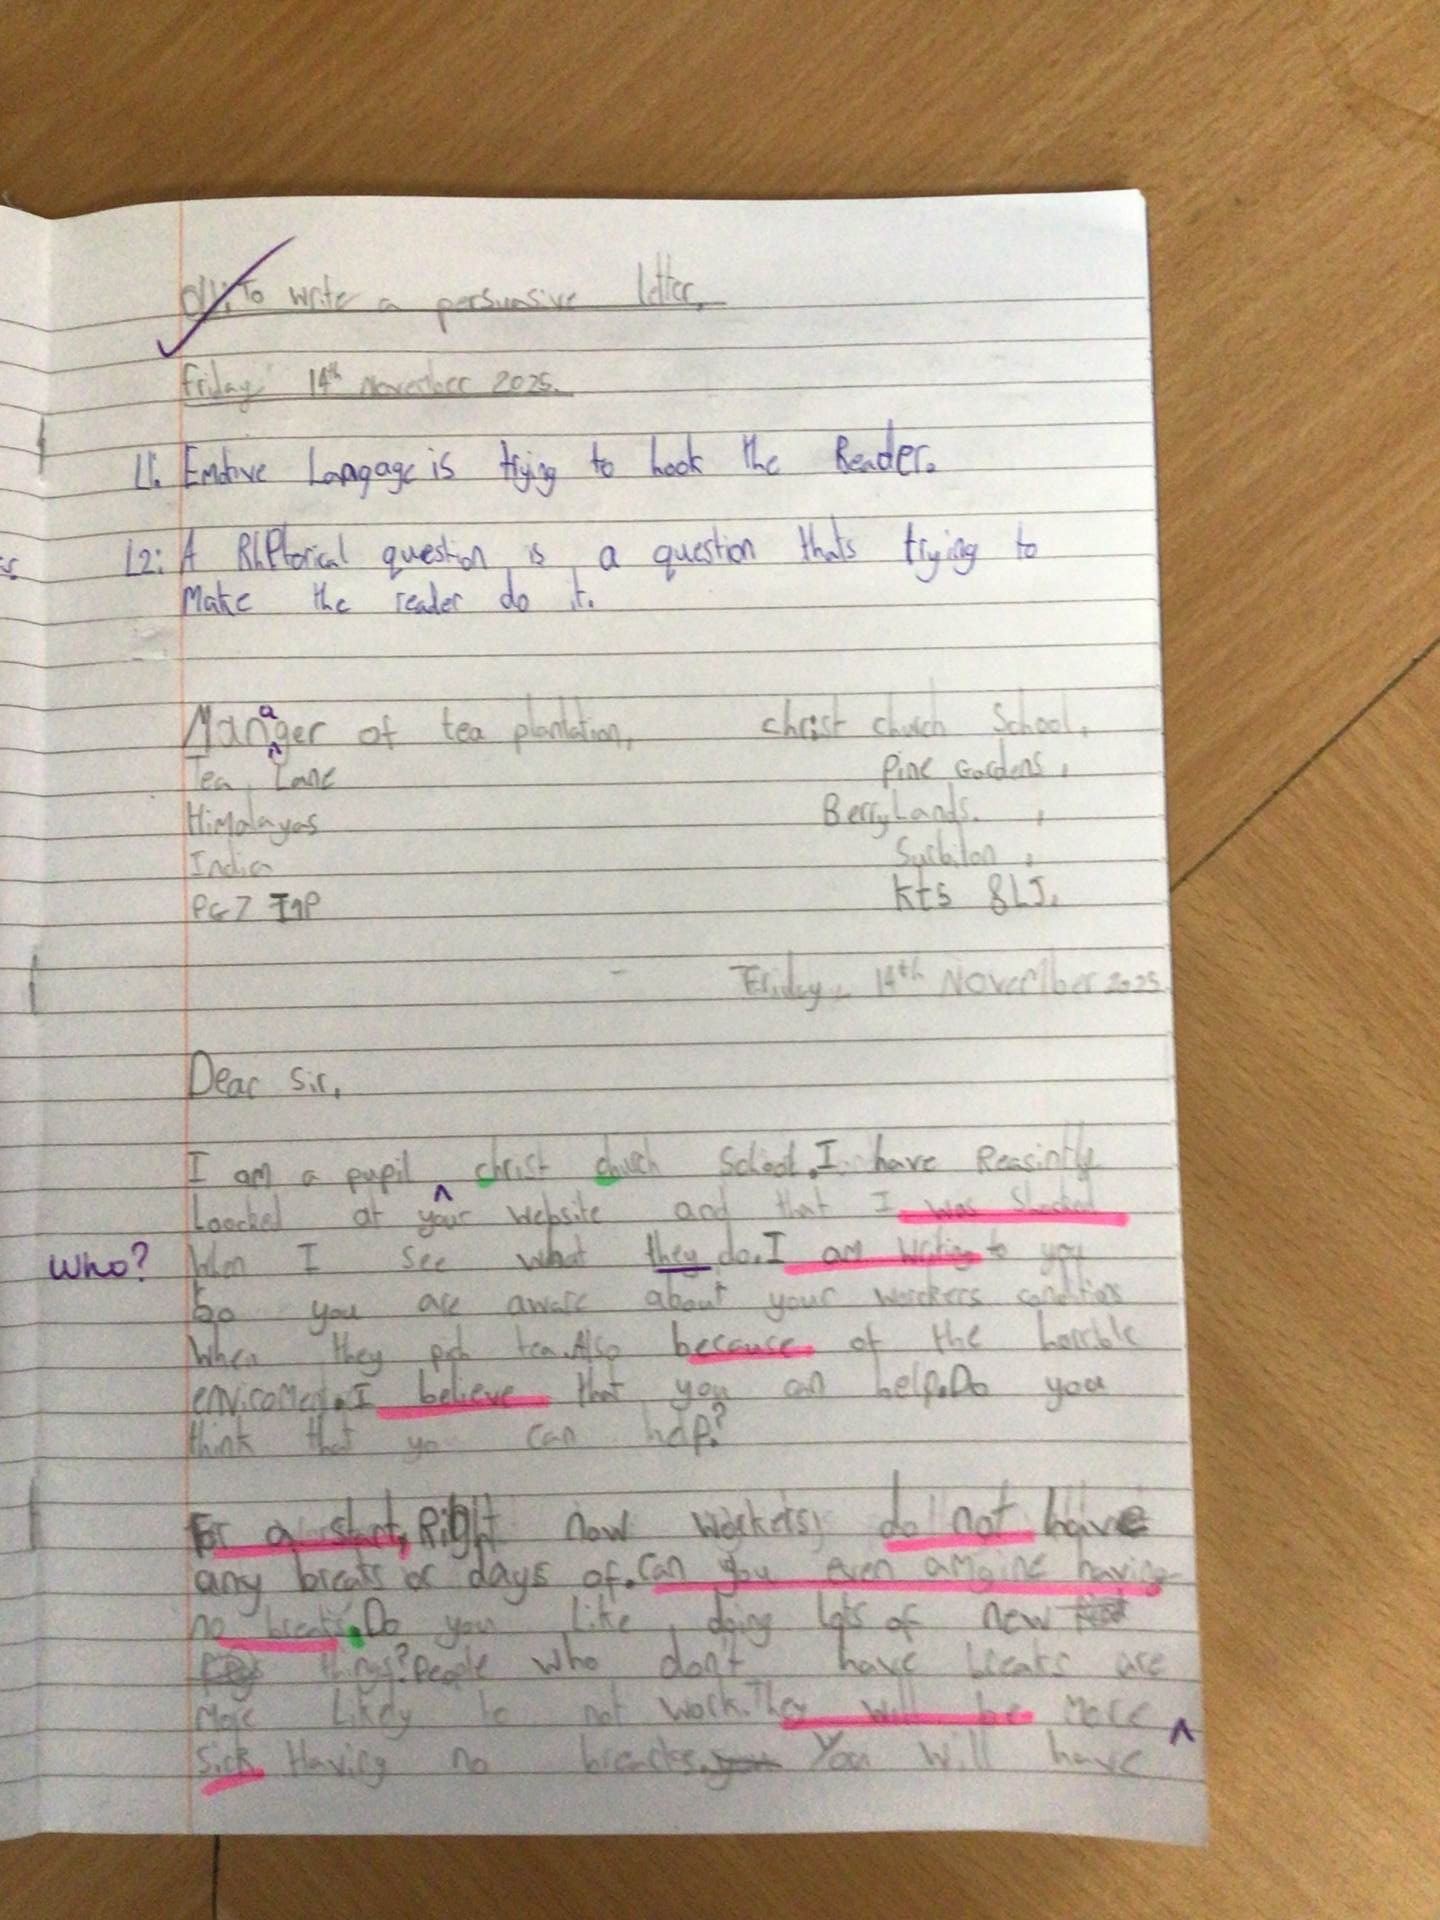 To write a persuasive letter.
Friday 14th November 2025.
L1. Emotive Langage is trying to hook the Reader.
L2: A RhPtorical question is a question thats trying to
Make the reader do it.
Manager of tea plantation, christ church School,
Tea Lane Pine Gardens,
Himalayas BerryLands,
India Surbiton,
PG7 kt5 8LJ.
Friday 14th November 2025
Dear Sir,
I am a pupil christ church School. I have Reasintly
Loocked at your website and that I was Shocked
Who? When I see what they do. I am writing to you
so you are aware about your workers condition
When they pick tea. Also because of the horrible
enviroment. I believe that you can help. Do you
think that you can help?
For a start, Right now workers do not have
any breaks or days of. Can you even amgine having
no breaks. Do you like doing lots of new
things? People who don't have breaks are
More Likely to not work. They will be more
sick Having no breacks. You will have